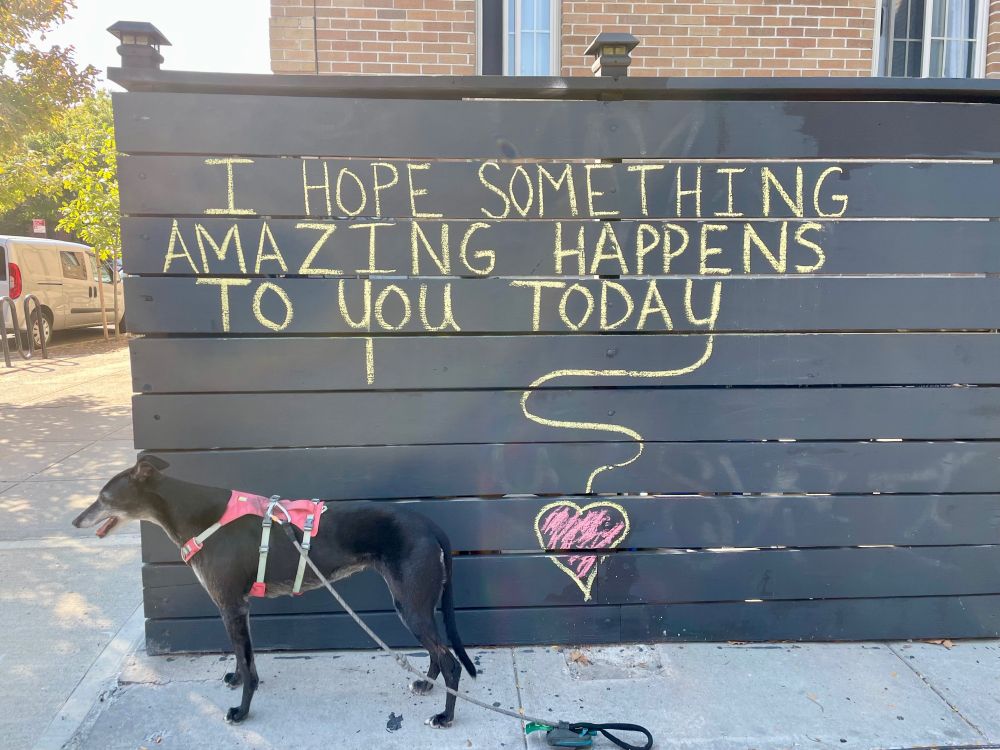 I HOPE SOMETHING
AMAZING HAPPENS
TO YOU TODAY